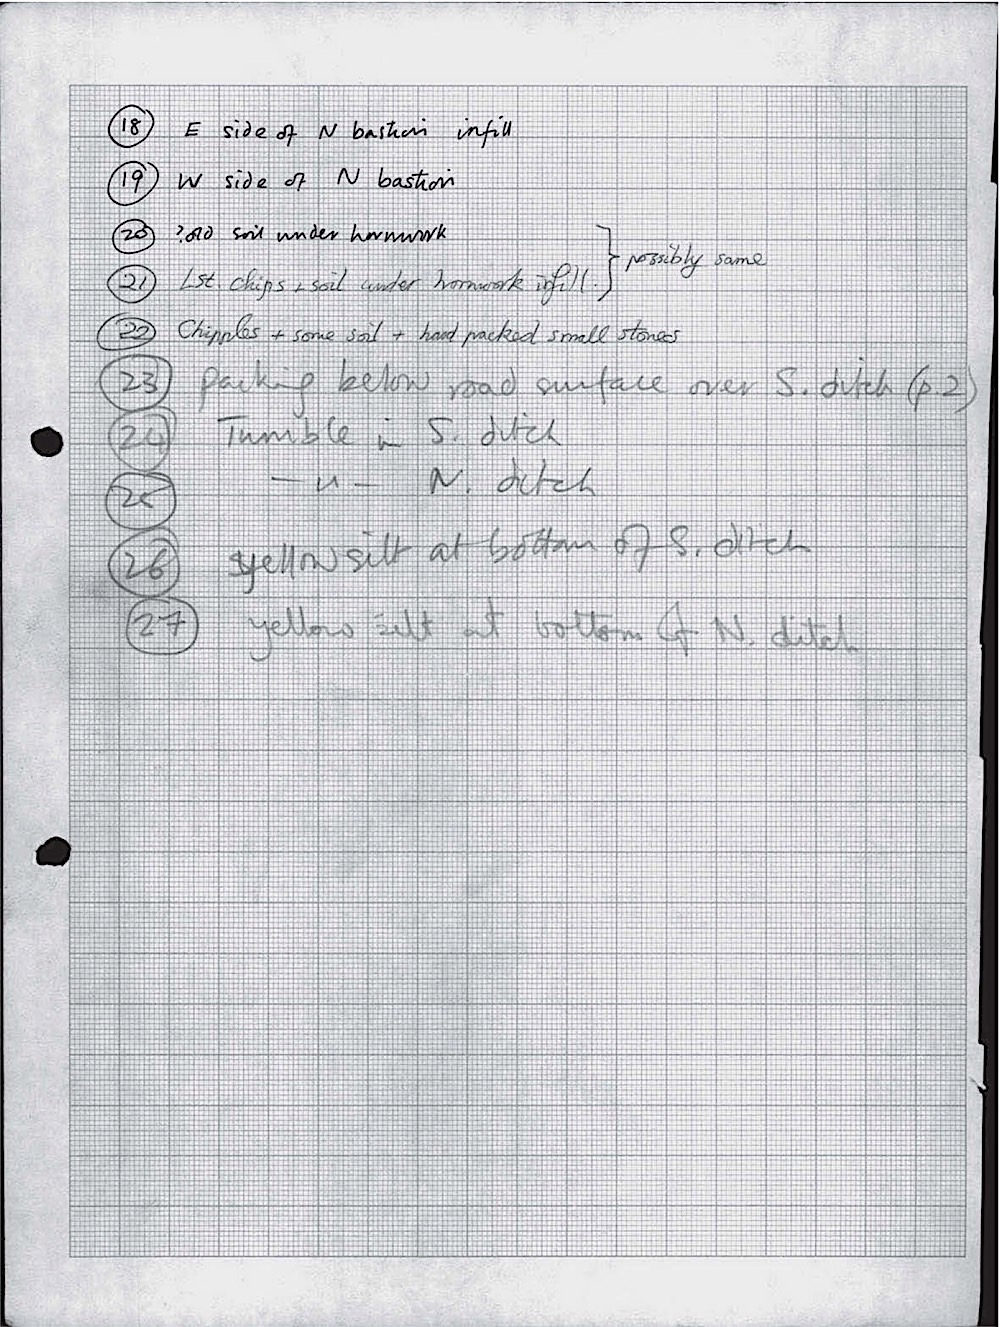 18 E side of N bastion infill
19 W side of N bastion
20 ?old soil under hornwork
21 Lst. chips + soil under hornwork infill. } possibly same
22 Chipples + some soil + hard packed small stones
23 packing below road surface over S. ditch (p.2)
24 Tumble in S. ditch
25 — " — N. ditch
26 yellow silt at bottom of S. ditch
27 yellow silt at bottom of N. ditch